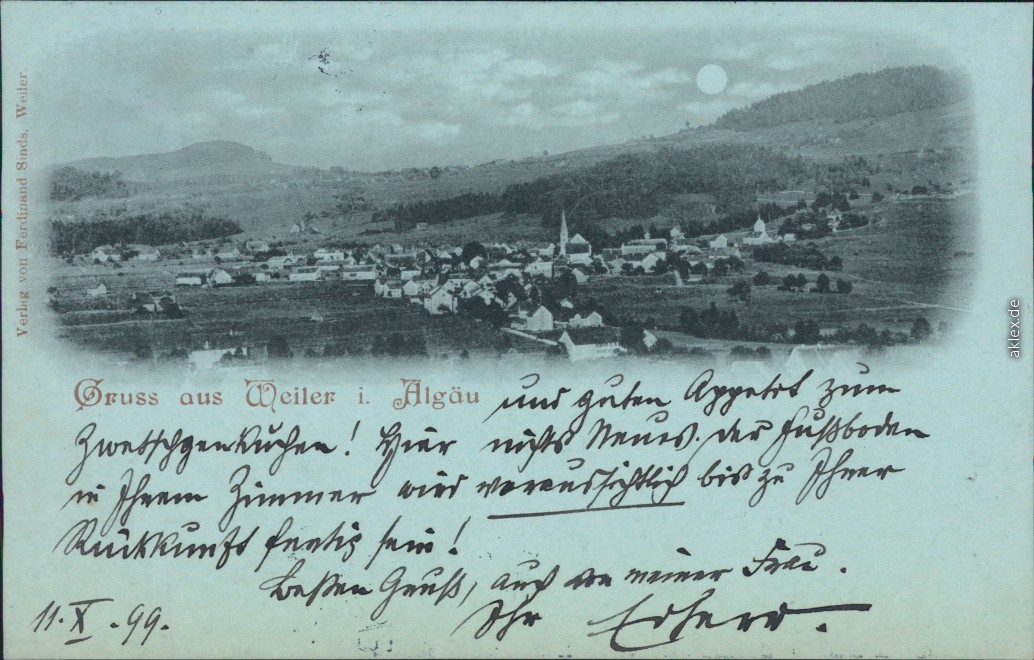 Verlag von Ferdinand Sinds, Weiler.
Gruss aus Weiler i. Algäu
und guten Appetit zum
Zwetschgenkuchen! Hier nichts Neues. Der Fußboden
in Ihrem Zimmer wird voraussichtlich bis zu Ihrer
Rückkunft fertig sein!
Besten Gruß, auch von meiner Frau.
11.X.99.
Ihr
aklex.de